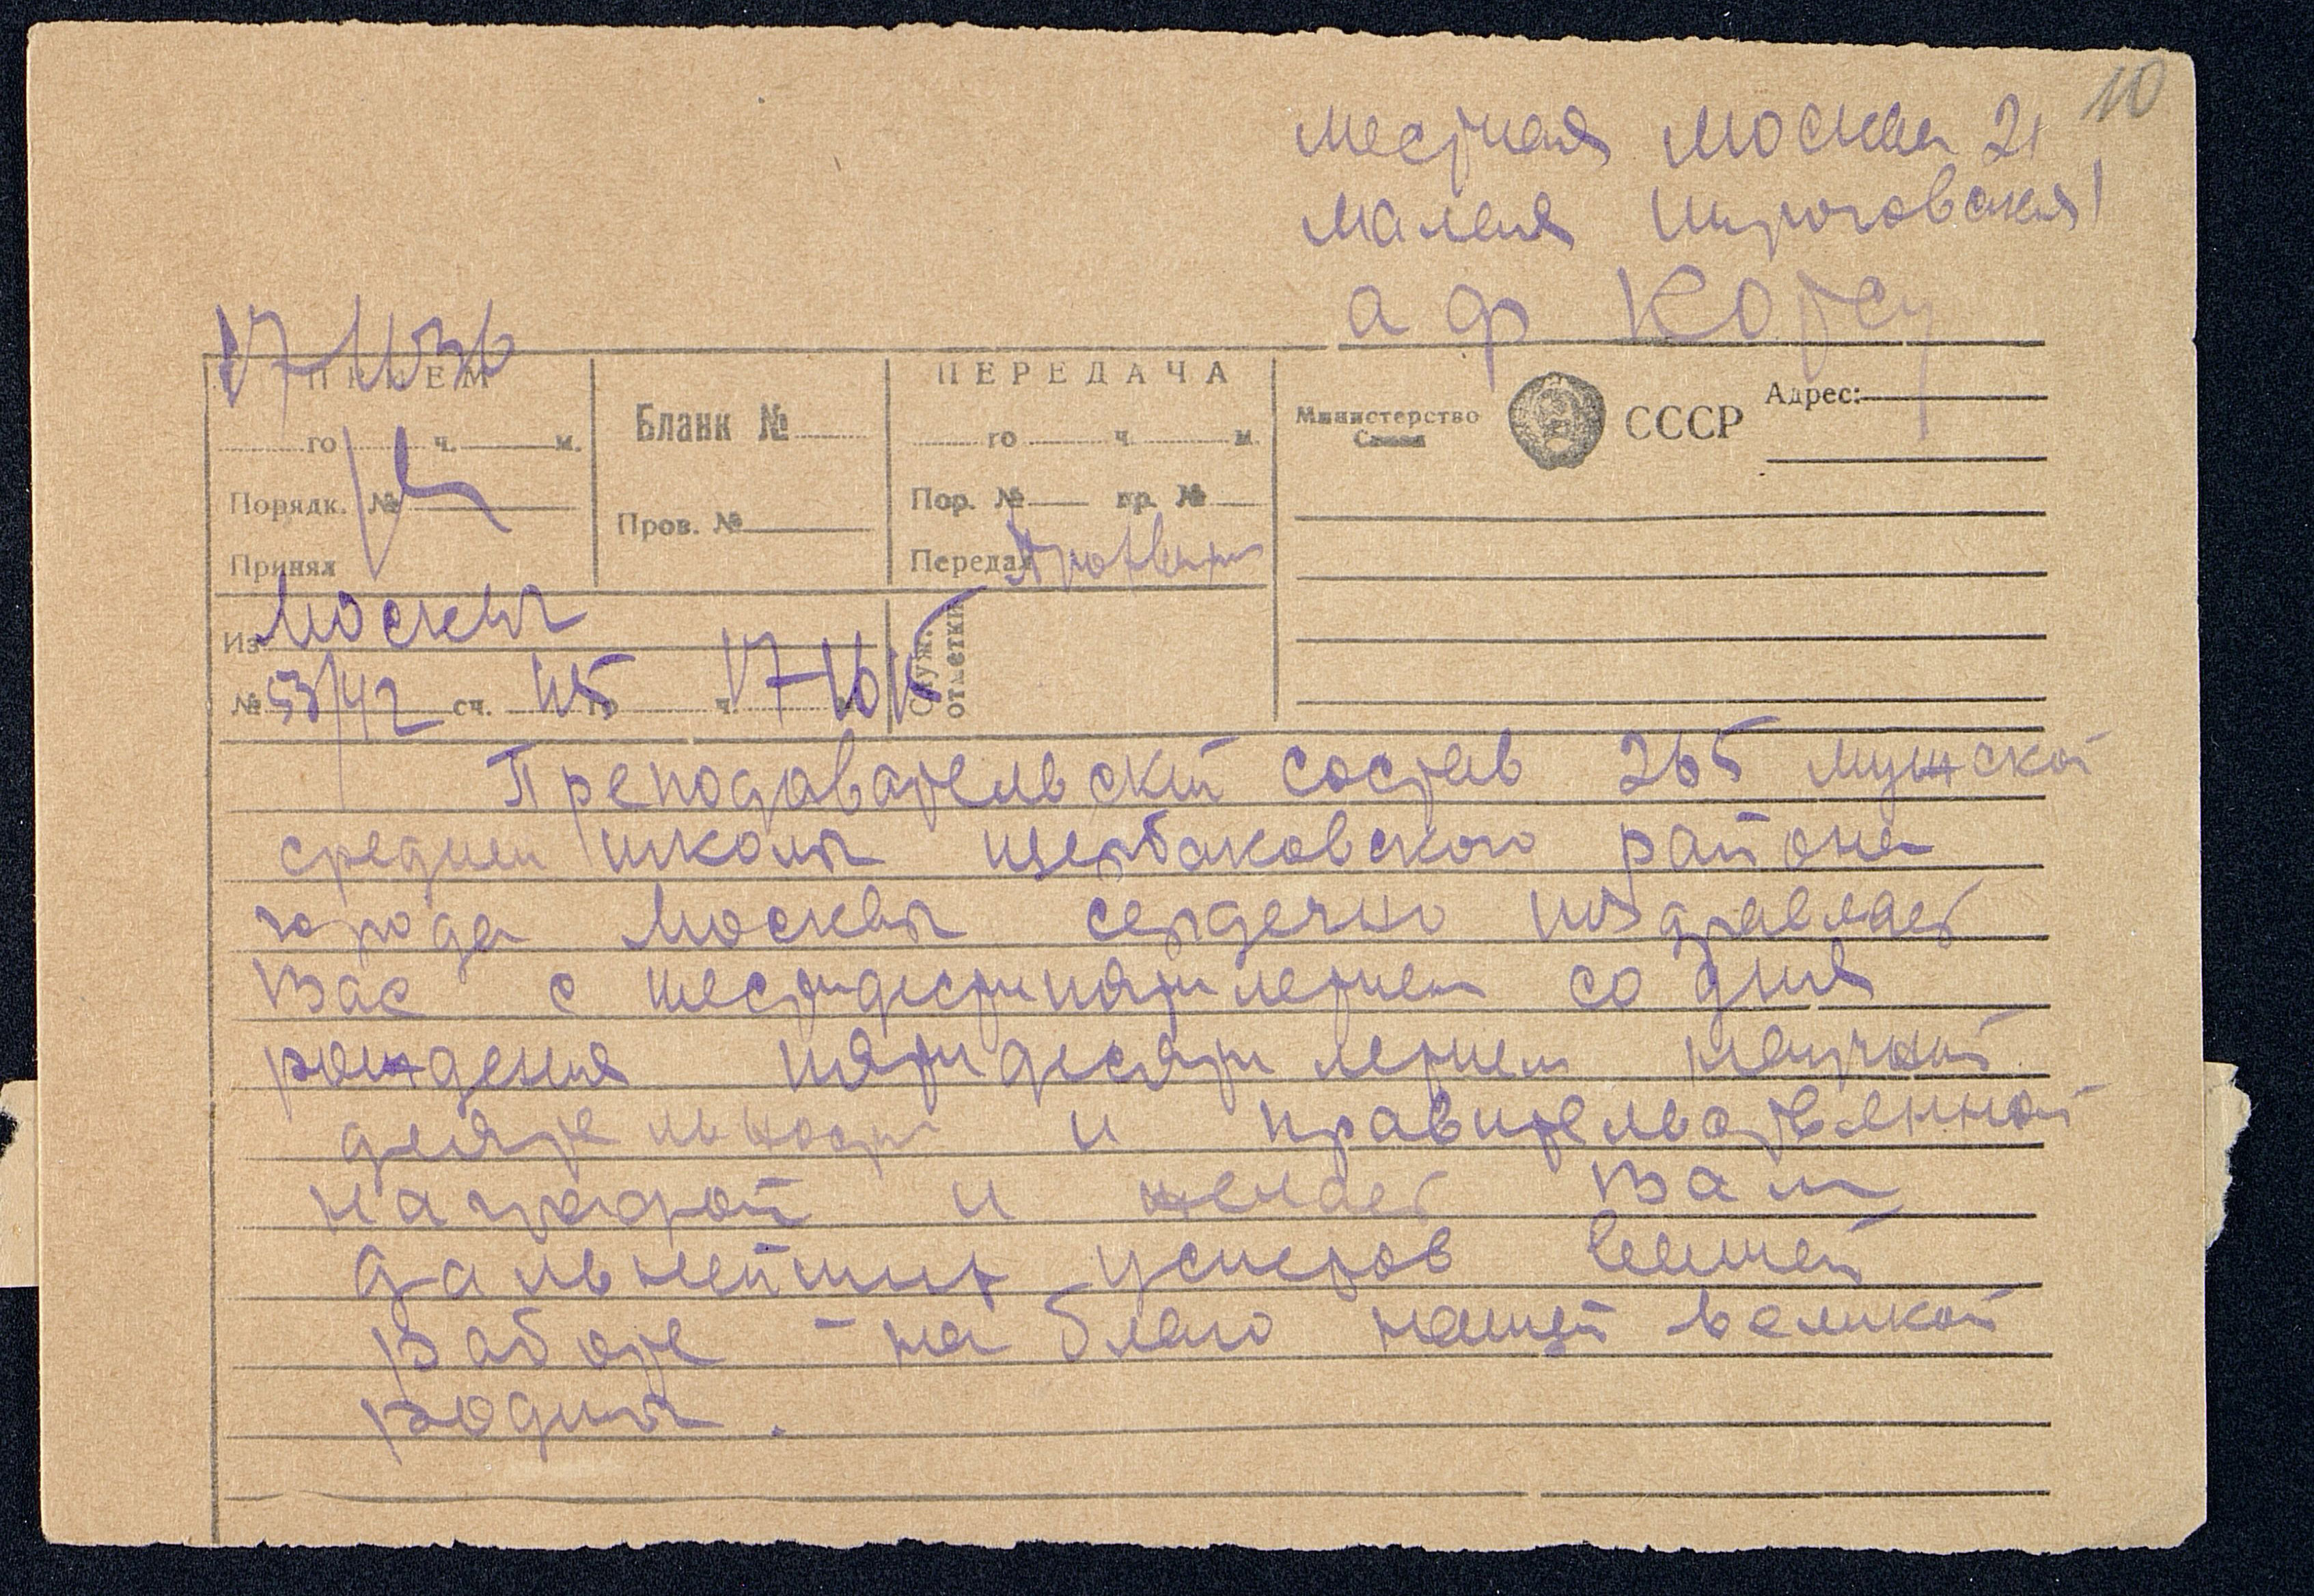 10
местная Москва 21
малая Пироговская 1
а ф Котсу
17 1036
ПРИЕМ
го ч. м.
Порядк. №
Принял
Бланк №
Пров. №
ПЕРЕДАЧА
го ч. м.
Пор. № пр. №
Передал
Министерство Связи СССР
Адрес:
Из Москвы
№ 53/42 сч. го 17-10 ч.
Служ. отметки
Преподавательский состав 265 мужской
средней школы щербаковского района
города Москвы сердечно поздравляет
вас с шестидесятипятилетием со дня
рождения пятидесятилетием научной
деятельности и правительственной
наградой и желает вам
дальнейших успехов вашей
работе - на благо нашей великой
родины.